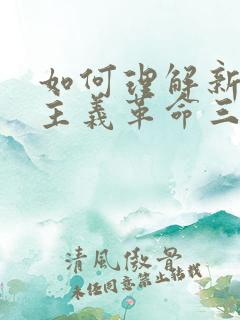 如何理解新
主义革命三
清風傲骨
未经同意禁止转载